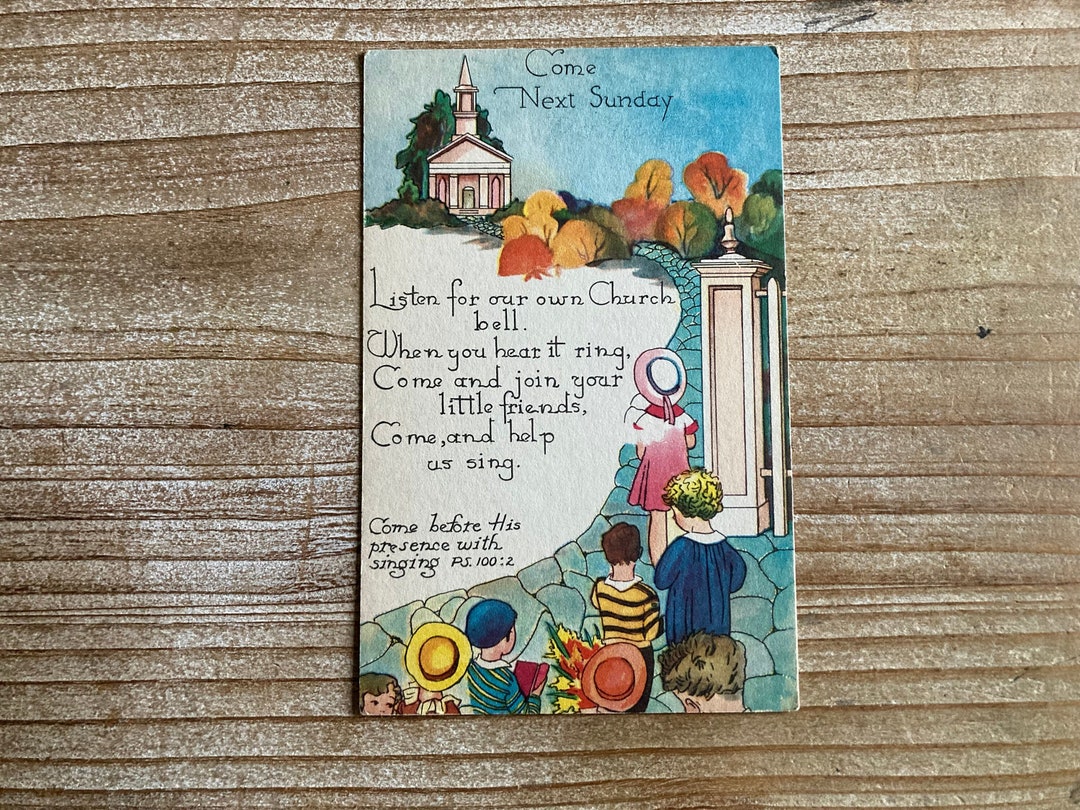 Come
Next Sunday
Listen for our own Church
bell.
When you hear it ring,
Come and join your
little friends,
Come, and help
us sing.
Come before His
presence with
singing PS. 100:2